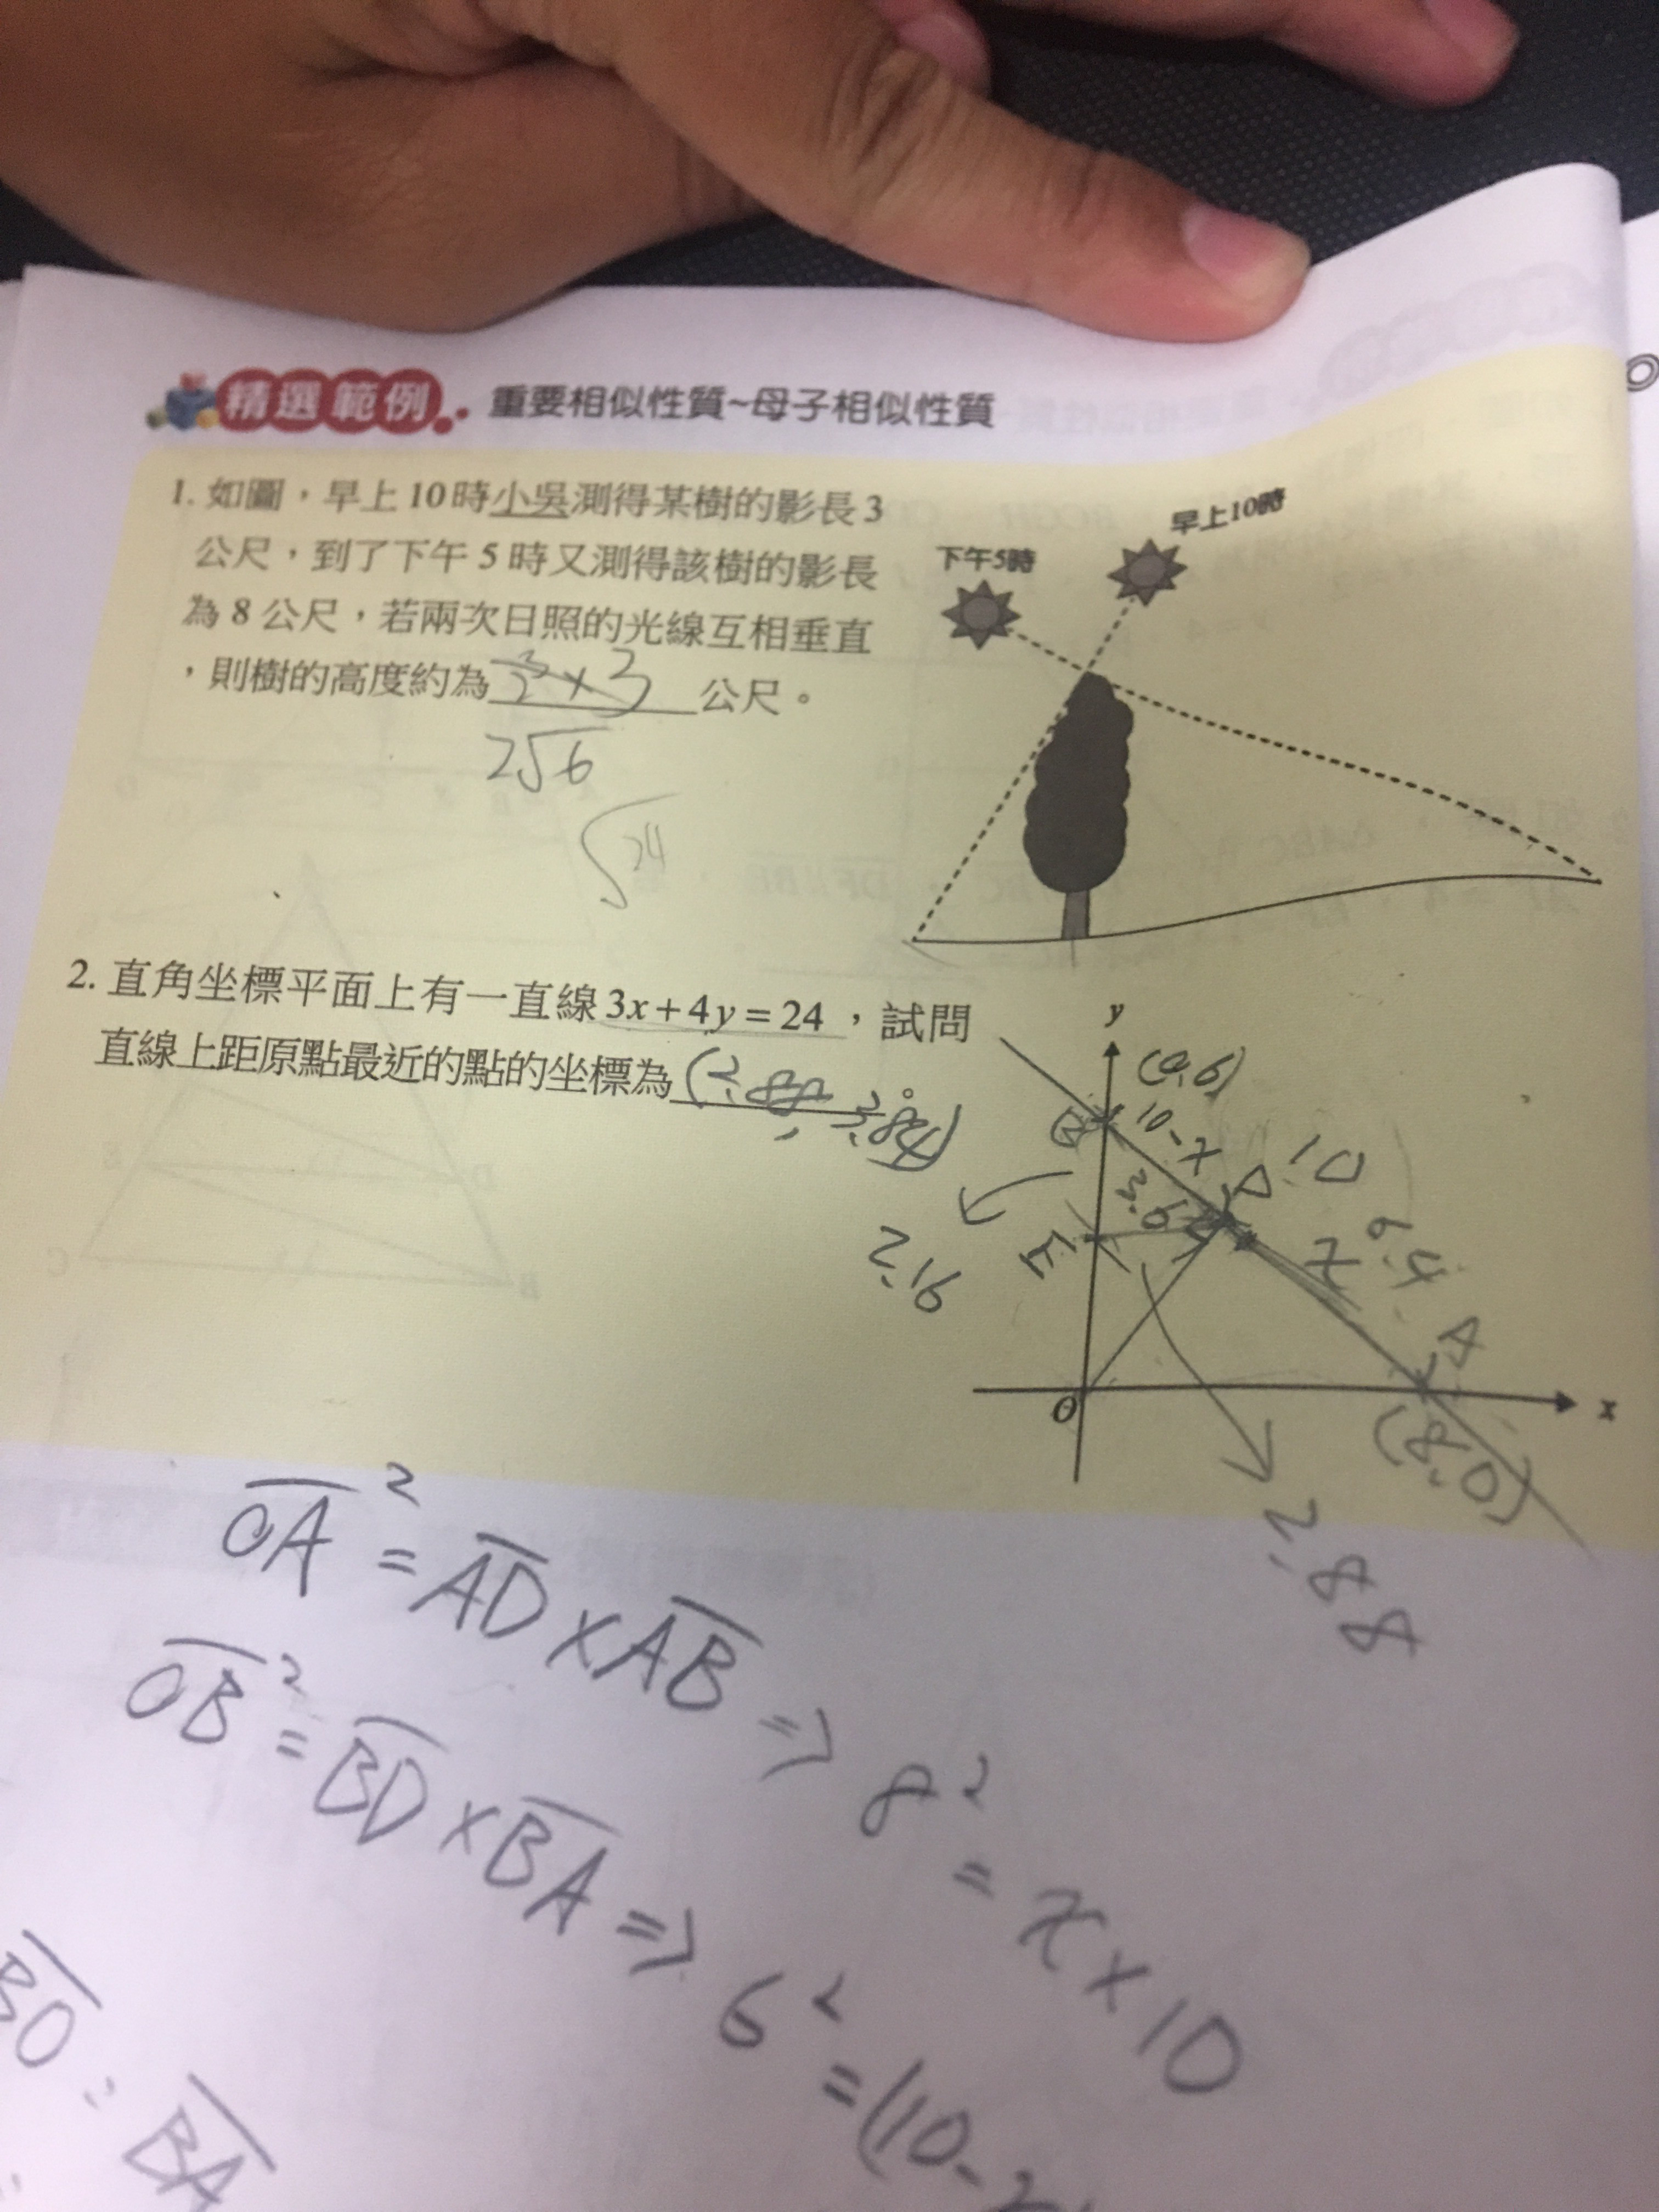 精選範例 重要相似性質~母子相似性質
1. 如圖，早上10時小吳測得某樹的影長3
公尺，到了下午5時又測得該樹的影長
為8公尺，若兩次日照的光線互相垂直
，則樹的高度約為 公尺。
2√6
√24
早上10時
下午5時
2. 直角坐標平面上有一直線3x+4y=24，試問
直線上距原點最近的點的坐標為
y
(0,6)
10-x
D
10
3.6
E
x
6.4
A
2.16
O
x
(8,0)
2.88
OA² = AD × AB ⇒ 8² = x × 10
OB² = BD × BA ⇒ 6² = (10-
BO : BA